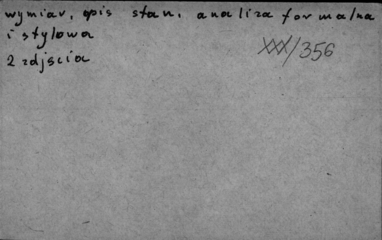 wymiar, opis stan, analiza formalna
i stylowa
2 zdjscia
XXX/356